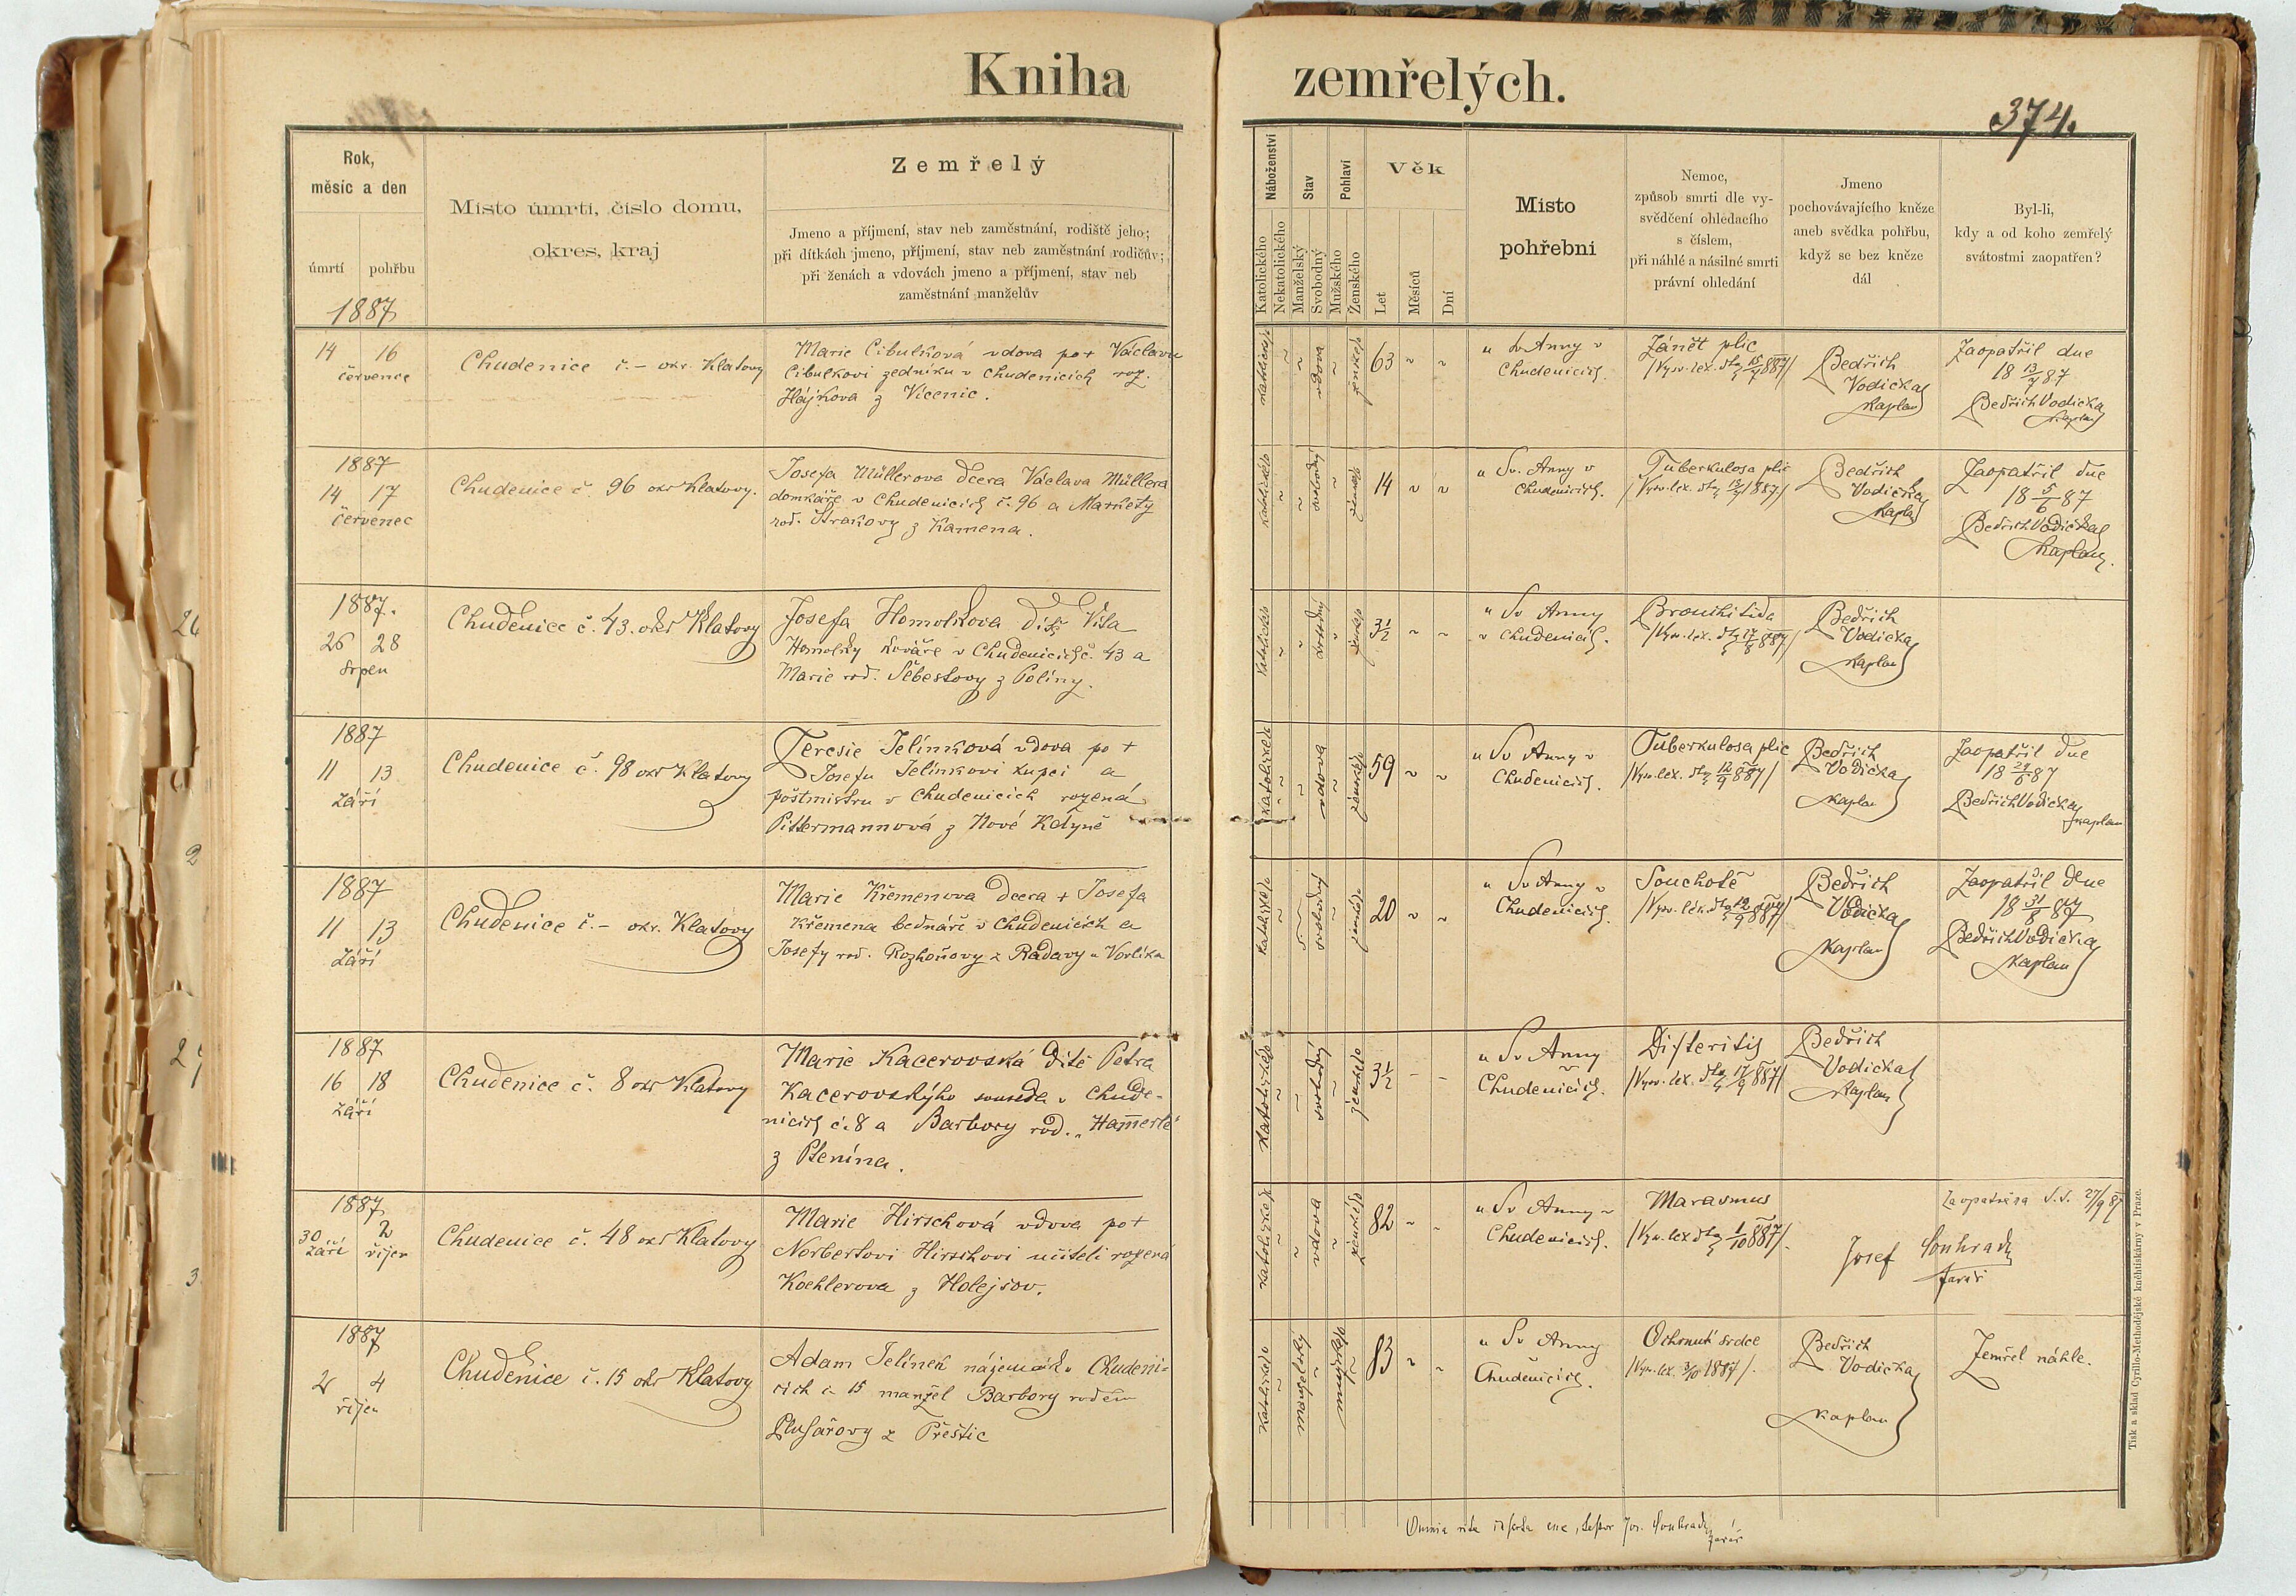 Kniha
zemřelých.
374.
Rok,
měsíc a den
úmrtí
pohřbu
Místo úmrtí, číslo domu,
okres, kraj
Zemřelý
Jmeno a příjmení, stav neb zaměstnání, rodiště jeho;
při dítkách jmeno, příjmení, stav neb zaměstnání rodičův;
při ženách a vdovách jmeno a příjmení, stav neb
zaměstnání manželův
Náboženství
Katolického
Nekatolického
Stav
Manželský
Svobodný
Pohlaví
Mužského
Ženského
Věk
Let
Měsíců
Dní
Místo
pohřební
Nemoc,
způsob smrti dle vy-
svědčení ohledacího
s číslem,
při náhlé a násilné smrti
právní ohledání
Jmeno
pochovávajícího kněze
aneb svědka pohřbu,
když se bez kněze
dál
Byl-li,
kdy a od koho zemřelý
svátostmi zaopatřen?
1887
14 16
července
Chudenice č. – okr. Klatovy
Marie Cibulková vdova po + Václavu
Cibulkovi zedníku v Chudenicích roz.
Hájkova z Vicenic.
katolického
vdova
ženského
63
u Sv Anny v
Chudenicích.
Zánět plic
Bedřich
Vodička
kaplan
Zaopatřil dne
18 13/7 87
Bedřich Vodička
kaplan
1887
14 17
červenec
Chudenice č. 96 okr Klatovy.
Josefa Müllerova dcera Václava Müllera
domkáře v Chudenicích č. 96 a Markéty
roz. Strakovy z Kamena.
katolického
svobodný
ženské
14
u Sv. Anny v
Chudenicích.
Tuberkulosa plic
Bedřich
Vodička
kaplan
Zaopatřil dne
18 5/6 87
Bedřich Vodička
kaplan
1887.
26 28
srpen
Chudenice č. 43. okr Klatovy
Josefa Homolkova dítě Víta
Homolky kováře v Chudenicích č. 43 a
Marie rod. Šebestovy z Poliny.
katolického
svobodný
ženského
3 1/2
u Sv Anny
v Chudenicích.
Bronchitida
Bedřich
Vodička
kaplan
1887
11 13
září
Chudenice č. 98 okr Klatovy
Teresie Jelínková vdova po +
Josefu Jelínkovi kupci a
poštmistru v Chudenicích rozená
Pittermannová z Nové Kdyně
katolického
vdova
ženského
59
u Sv Anny v
Chudenicích.
Tuberkulosa plic
Bedřich
Vodička
kaplan
Zaopatřil dne
Bedřich Vodička
kaplan
1887
11 13
září
Chudenice č. – okr. Klatovy
Marie Křemenova dcera + Josefa
Křemena bednáře v Chudenicích a
Josefy rod. Rozhoňovy z Radavy u Vorlíka
katolického
svobodný
ženské
20
u Sv Anny v
Chudenicích.
Souchotě
Bedřich
Vodička
kaplan
Zaopatřil dne
18 31/8 87
Bedřich Vodička
kaplan
1887
16 18
září
Chudenice č. 8 okr Klatovy
Marie Kacerovská dítě Petra
Kacerovskýho souseda v Chude-
nicích č. 8 a Barbory rod. „Hamerle"
z Plenína.
katolického
svobodný
ženského
3 1/2
u Sv Anny
Chudenicích.
Difteritis
Bedřich
Vodička
kaplan
1887
30 2
září říjen
Chudenice č. 48 okr Klatovy
Marie Hirschová vdova po +
Norbertovi Hirschovi učiteli rozená
Koehlerova z Holejsov.
katolického
vdova
ženského
82
u Sv Anny v
Chudenicích.
Marasmus
Zaopatřena S. S. 27/9 87
Josef Souhrada
farář
1887
2 4
říjen
Chudenice č. 15 okr Klatovy
Adam Jelínek nájemník v Chudeni-
cích č. 15 manžel Barbory rodem
Plusařovy z Přeštic
katolického
manželský
mužského
83
u Sv Anny
Chudenicích.
Ochrnutí srdce
Bedřich
Vodička
kaplan
Zemřel náhle.
Jos. Souhrada
farář
Tisk a sklad Cyrillo-Methodějské knihtiskárny v Praze.